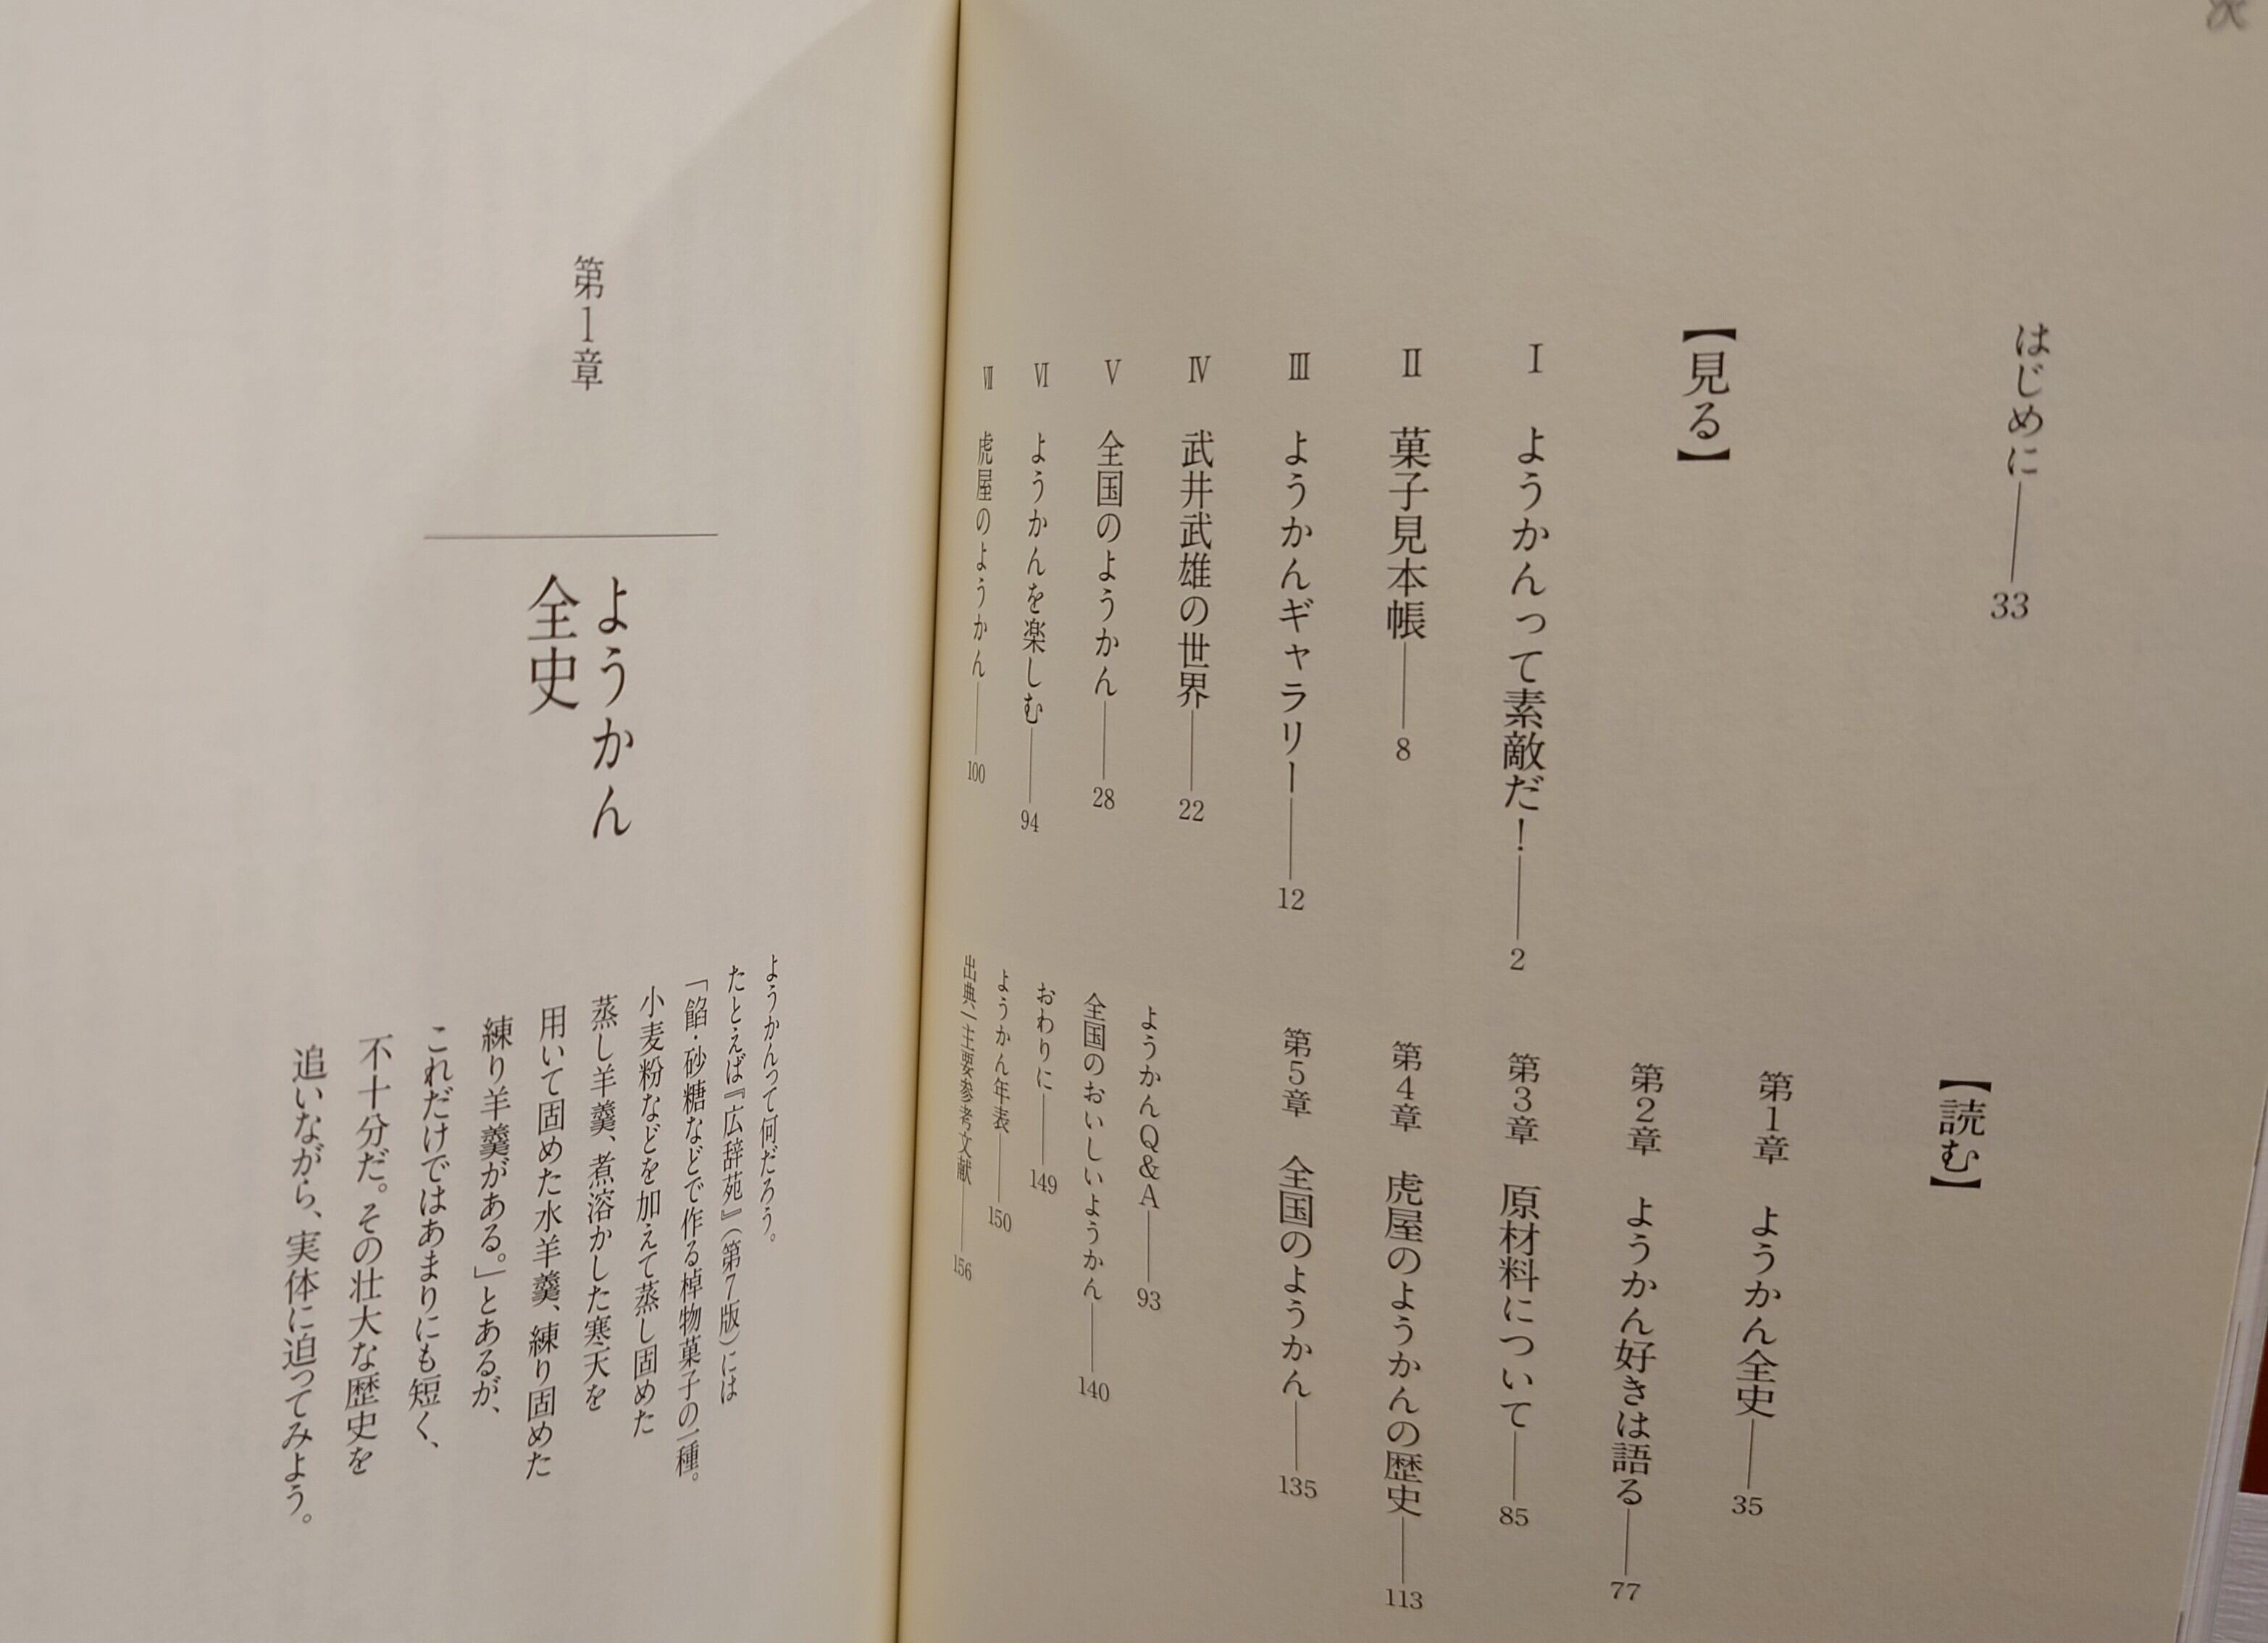 次
はじめに――33
【見る】
Ⅰ ようかんって素敵だ！――2
Ⅱ 菓子見本帳――8
Ⅲ ようかんギャラリー――12
Ⅳ 武井武雄の世界――22
Ⅴ 全国のようかん――28
Ⅵ ようかんを楽しむ――94
Ⅶ 虎屋のようかん――100
【読む】
第1章 ようかん全史――35
第2章 ようかん好きは語る――77
第3章 原材料について――85
第4章 虎屋のようかんの歴史――113
第5章 全国のようかん――135
ようかんQ&A――93
全国のおいしいようかん――140
おわりに――149
ようかん年表――150
出典／主要参考文献――156
第1章
ようかん
全史
ようかんって何だろう。
たとえば『広辞苑』（第7版）には
「餡・砂糖などで作る棹物菓子の一種。
小麦粉などを加えて蒸し固めた
蒸し羊羹、煮溶かした寒天を
用いて固めた水羊羹、練り固めた
練り羊羹がある。」とあるが、
これだけではあまりにも短く、
不十分だ。その壮大な歴史を
追いながら、実体に迫ってみよう。